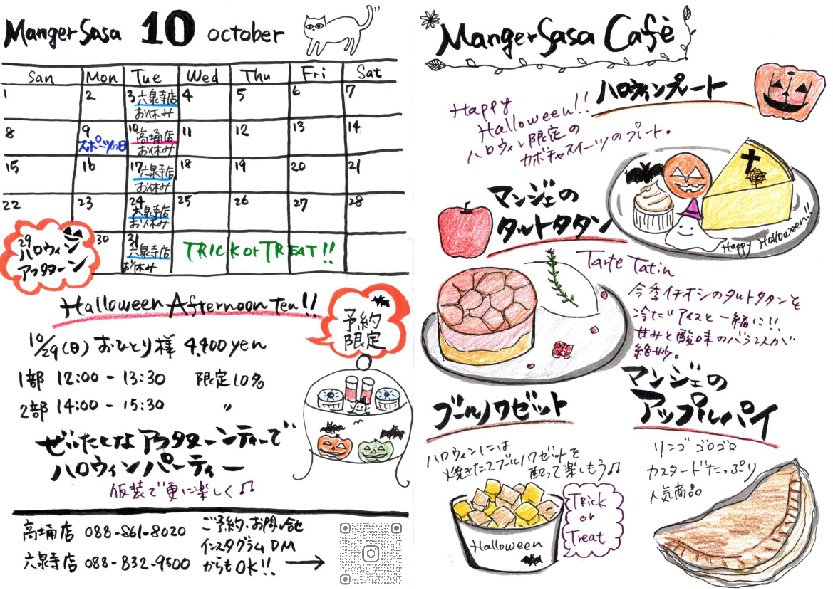 Manger Sasa 10 october
Sun Mon Tue Wed Thu Fri Sat
1 2 3 六泉寺店 4 5 6 7
お休み
8 9 10 高埇店 11 12 13 14
スポーツの日 お休み
15 16 17 六泉寺店 18 19 20 21
お休み
22 23 24 六泉寺店 25 26 27 28
お休み
29 30 31
ハロウィン 六泉寺店 TRICK or TREAT!!
アフターン お休み
Halloween Afternoon Tea!!
予約
限定
10/29(日) おひとり様 4,400yen
1部 12:00 - 13:30 限定10名
2部 14:00 - 15:30 〃
ぜいたくなアフタヌーンティーで
ハロウィンパーティー
仮装で更に楽しく♫
高埇店 088-861-8020
六泉寺店 088-832-9500
ご予約・お問い合せ
インスタグラムDM
からもOK!! →
Manger Sasa Cafè
ハロウィンプレート
Happy
Halloween!!
ハロウィン限定の
カボチャスイーツのプレート。
Happy Halloween!!
マンジェの
タルトタタン
Tarte Tatin
今季イチオシのタルトタタンを
冷たいアイスと一緒に!!
甘サと酸味のバランスが
絶妙。
ブールノワゼット
ハロウィンには
焼きたてブールノワゼットを
配って楽しもう♫
Halloween
Trick
or
Treat
マンジェの
アップルパイ
リンゴゴロゴロ
カスタードたっぷり
人気商品